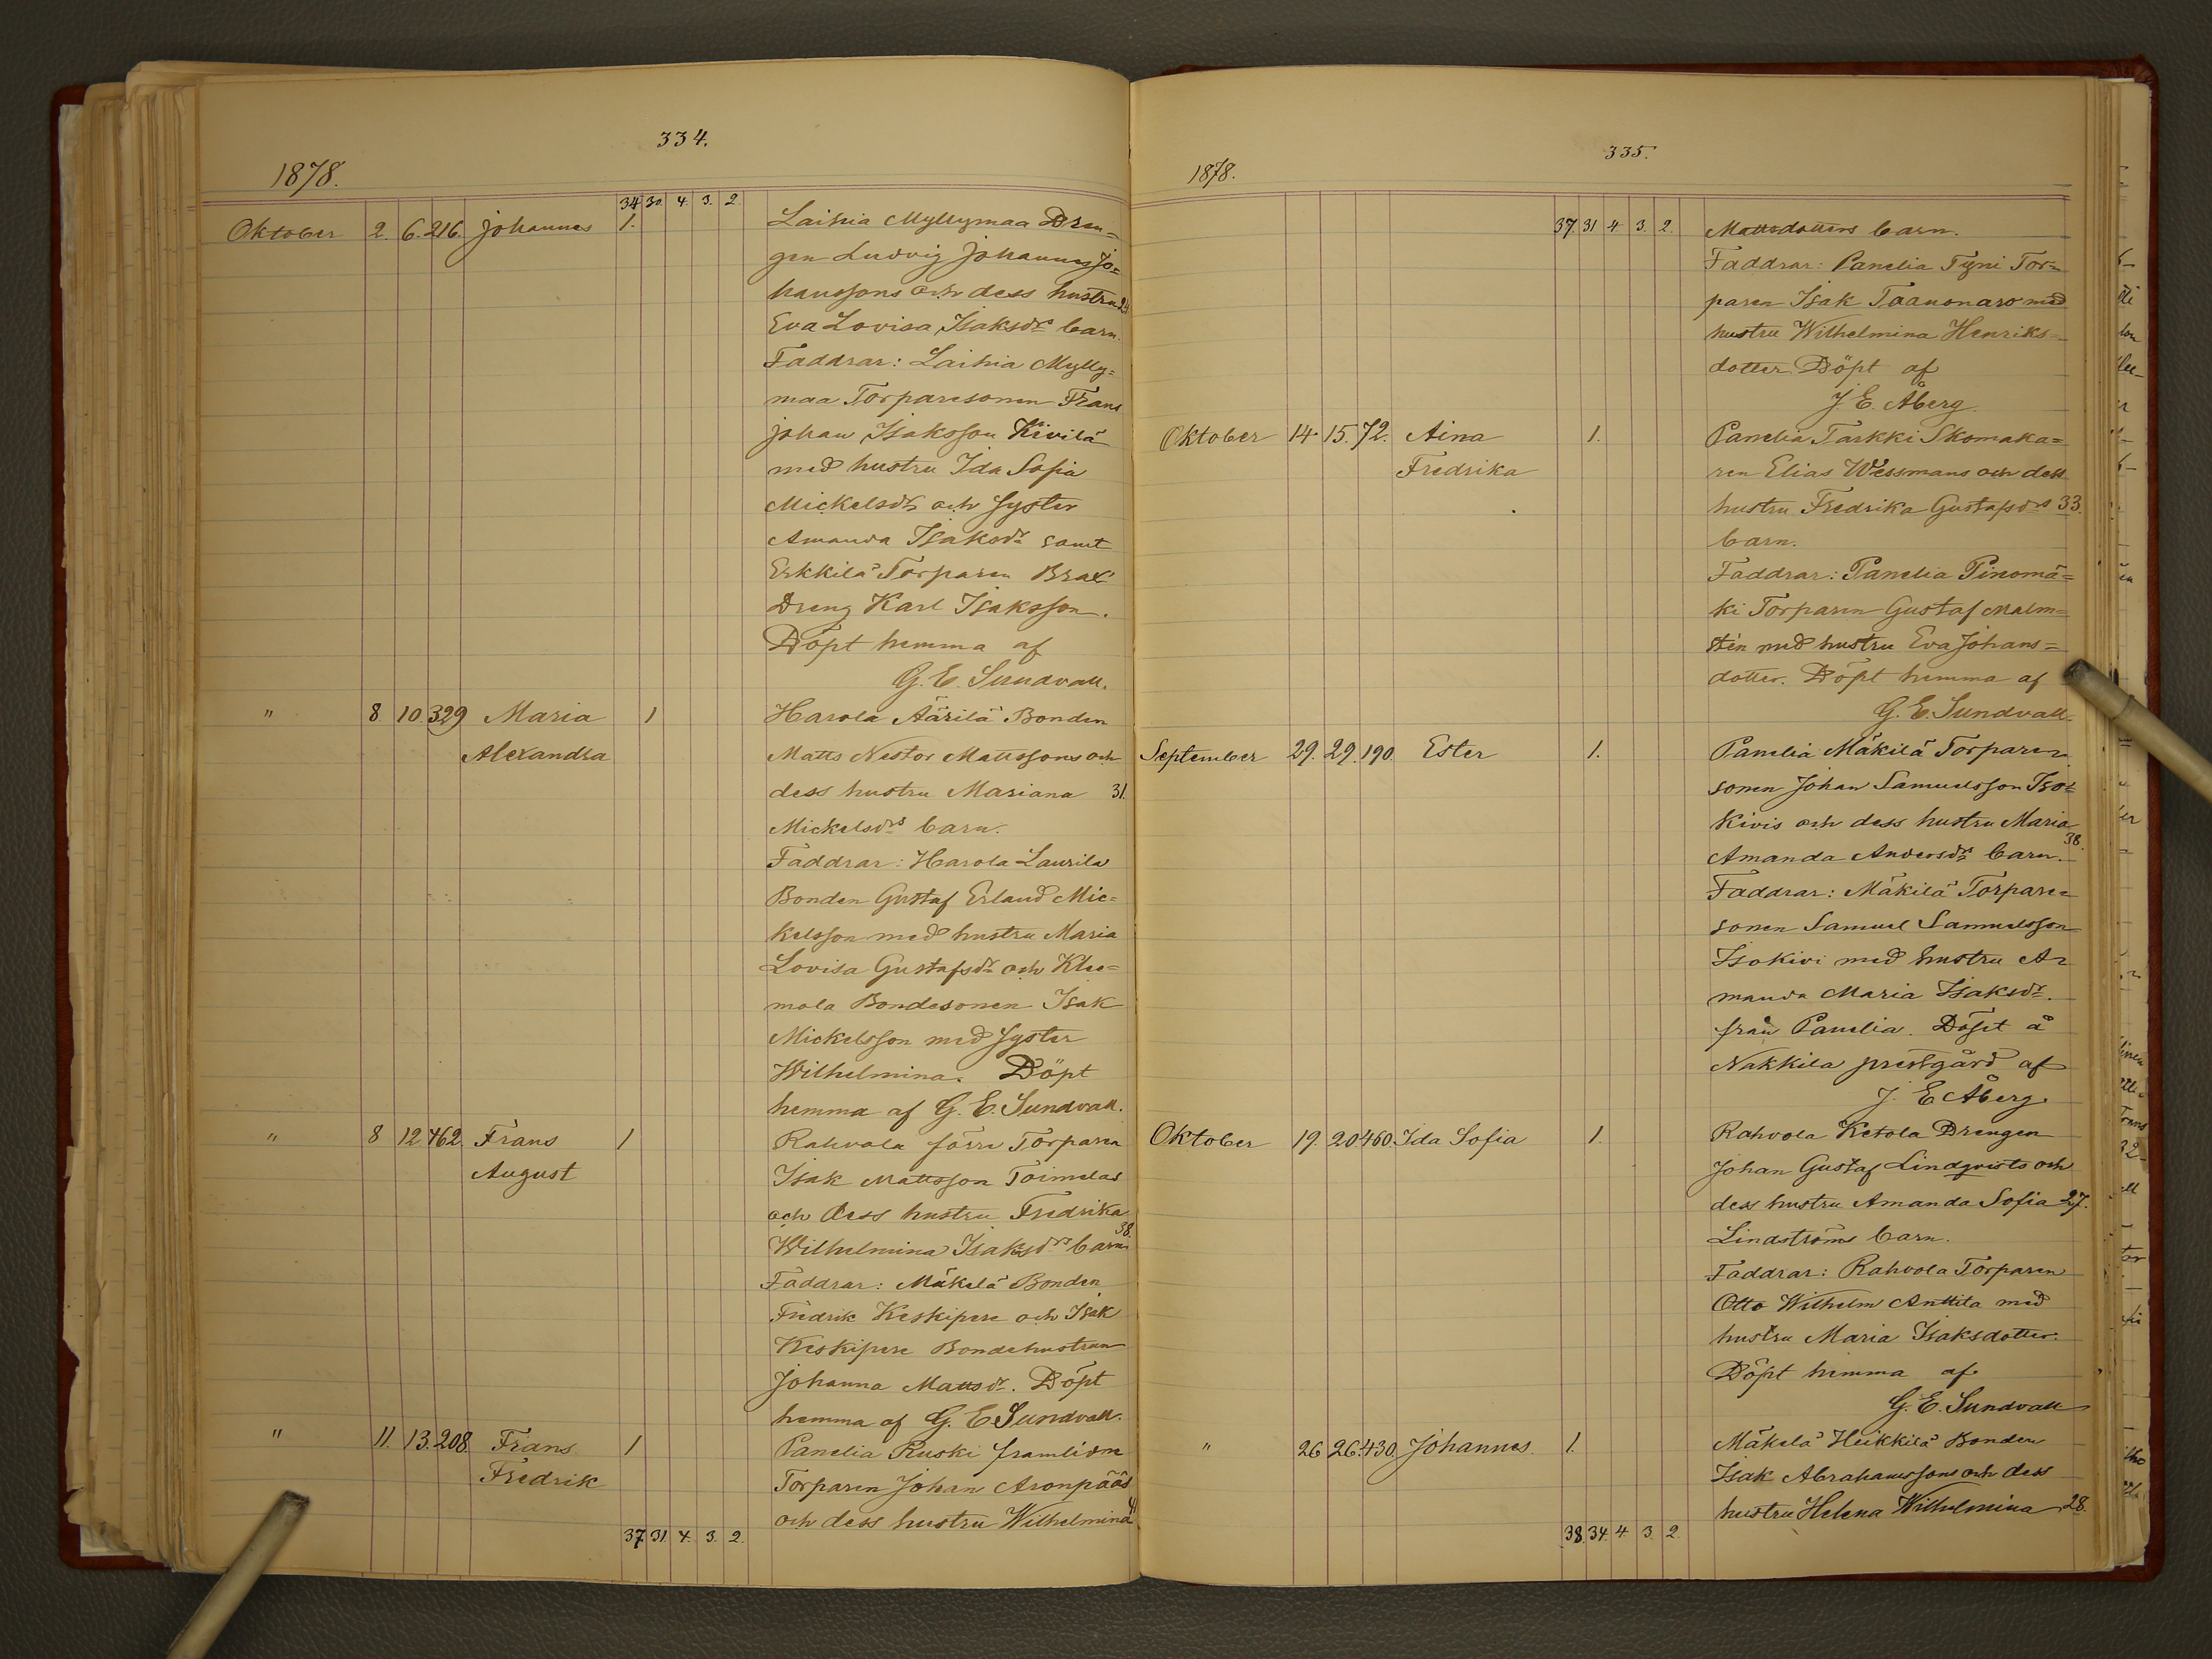 334.
1878.
34 30. 4. 3. 2.
Oktober 2. 6. 216. Johannes 1. Laihia Myllymaa Dren=
gen Ludvig Johannes Jo=
hanssons och dess hustru 24
Eva Lovisa Isaksdrs barn.
Faddrar: Laihia Mylly=
maa Torparesonen Frans
Johan Isaksson Kivilä
med hustru Ida Sofia
Mickelsdr och syster
Amanda Isaksdr samt
Erkkilä Torparen
Dreng Karl Isaksson.
Döpt hemma af
G. E. Sundvall.
" 8. 10. 329 Maria 1 Harola Äärilä Bonden
Alexandra Matts Nestor Mattssons och
dess hustru Mariana 31.
Mickelsdrs barn.
Faddrar: Harola Laurila
Bonden Gustaf Erland Mic=
kelsson med hustru Maria
Lovisa Gustafsdr och Klee=
mola Bondesonen Isak
Mickelsson med syster
Wilhelmina. Döpt
hemma af G. E. Sundvall.
" 8 12 462. Frans 1 Rahvola förre Torparen
August Isak Mattsson Toimelas
och dess hustru Fredrika
38.
Wilhelmina Isaksdrs barn
Faddrar: Mäkelä Bonden
Fredrik Keskipere och Isak
Keskipere Bondehustrun
Johanna Mattsdr. Döpt
hemma af G. E Sundvall.
" 11. 13. 208. Frans 1 Panelia Ruski framlidne
Fredrik Torparen Johan Aronpääs
och dess hustru Wilhelmina
37. 31. 4. 3. 2.
335.
1878.
37. 31 4 3. 2. Mattsdotters barn.
Faddrar: Panelia Tyni Tor=
paren Isak Taauonaro med
hustru Wilhelmina Henriks=
dotter Döpt af
J. E. Åberg.
Oktober 14. 15. 72. Aina 1. Panelia Tarkki Skomaka=
Fredrika ren Elias Wessmans och dess
hustru Fredrika Gustafsdrs 33.
barn.
Faddrar: Panelia Pinomä=
ki Torparen Gustaf Malm=
stén med hustru Eva Johans=
dotter. Döpt hemma af
G. E. Sundvall.
September 29. 29. 190. Ester 1. Panelia Mäkilä Torpare=
sonen Johan Samuelsson Iso=
kivis och dess hustru Maria
38.
Amanda Andersdrs barn.
Faddrar: Mäkilä Torpare=
sonen Samuel Samuelsson
Isokivi med hustru A=
manda Maria Isaksdr.
från Panelia. Döpt å
Nakkila prestgård af
J. E Åberg.
Oktober 19. 20 460. Ida Sofia 1. Rahvola Ketola Drengen
Johan Gustaf Lindqvists och
dess hustru Amanda Sofia 27.
Lindströms barn.
Faddrar: Rahvola Torparen
Otto Wilhelm Anttila med
hustru Maria Isaksdotter.
Döpt hemma af
G. E. Sundvall
" 26 26. 430. Johannes. 1. Mäkelä Heikkilä Bonden
Isak Abrahamssons och dess
hustru Helena Wilhelmina 28.
38. 34. 4. 3. 2.